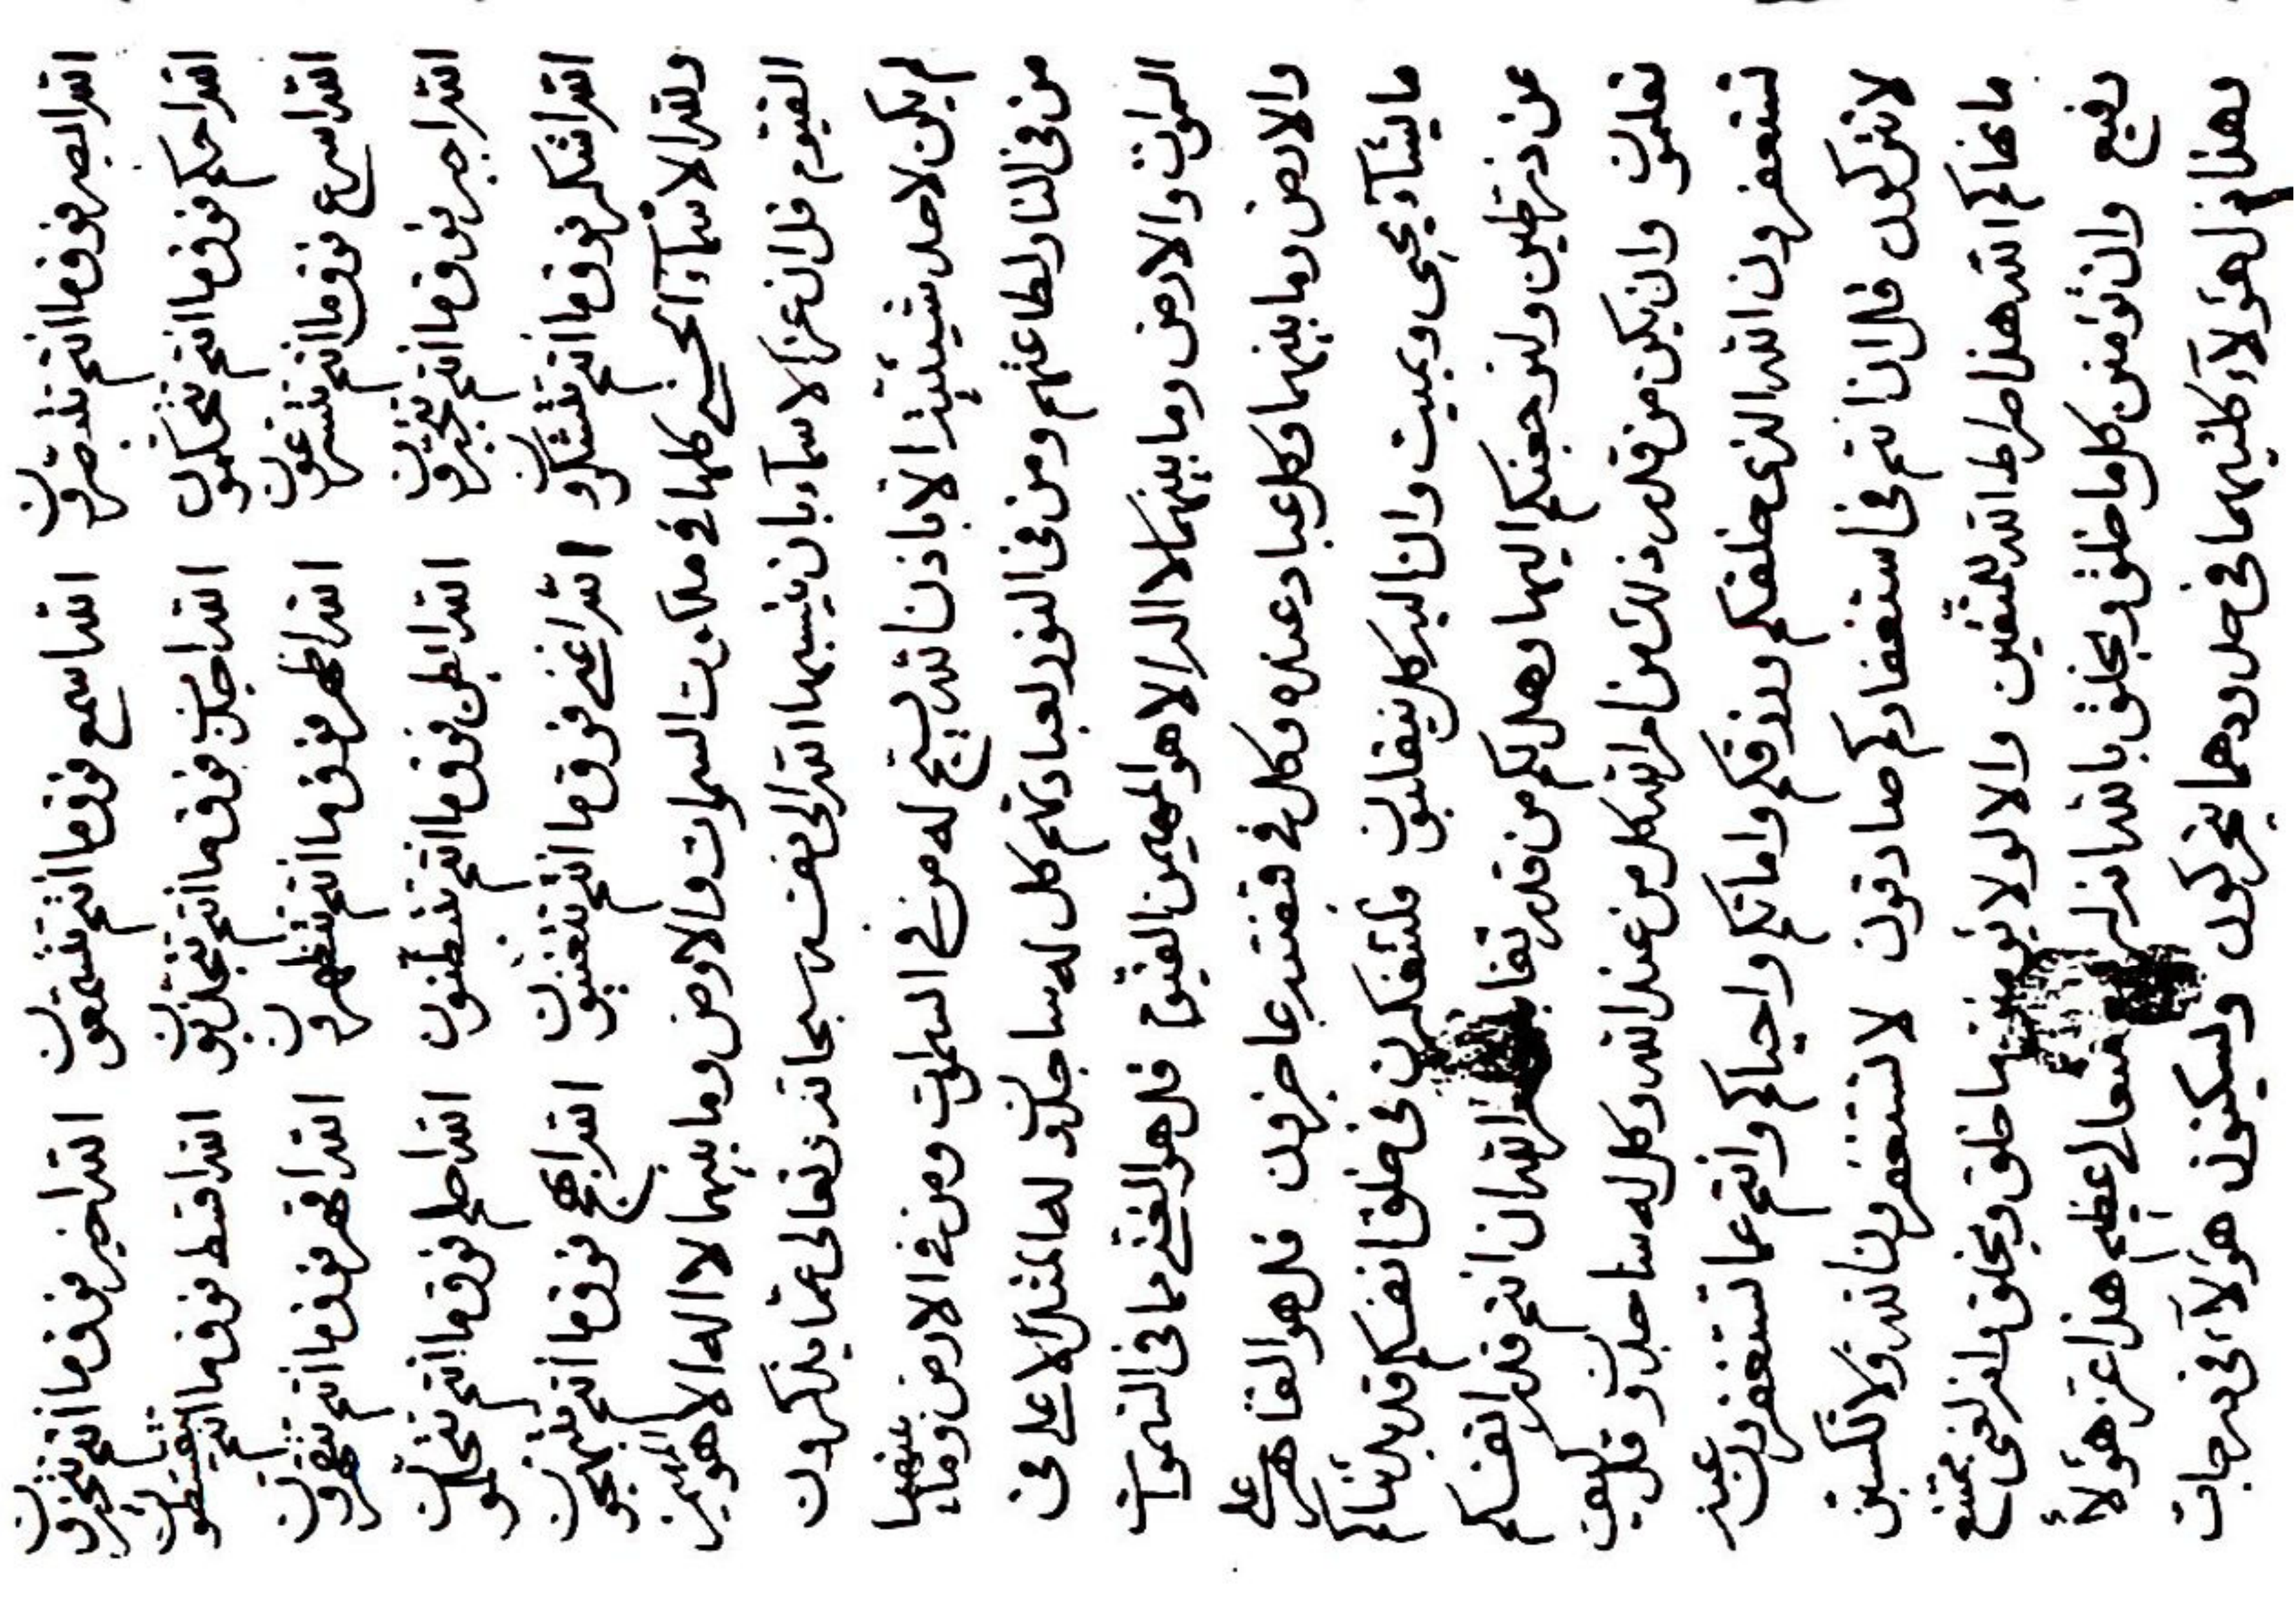 الله ابصر فوق ما انتم تبتصرون الله اسمع فوق ما انتم تستمعون الله اخبر فوق ما انتم تختبرون
الله احكم فوق ما انتم تحتكمون الله اجذب فوق ما انتم تجتذبون الله اقسط فوق ما انتم تقتسطون
الله اسرع فوق ما انتم تسترعون الله اظهر فوق ما انتم تظتهرون الله اقهر فوق ما انتم تقتهرون
الله اجبر فوق ما انتم تجتبرون الله ابطن فوق ما انتم تبتطنون الله احلم فوق ما انتم تحتلمون
الله اشكر فوق ما انتم تشتكرون الله اغنى فوق ما انتم تغتنيون الله ابهج فوق ما انتم تبتهجون
ولله الاسمآء الحسنى كلها في ملكوت السموات والارض وما بينهما لا اله الا هو المهيمن
القيوم قل ان عز كل الاسمآء بان ينسبها الله الى نفسه سبحانه وتعالى عما يذكرون
لم يكن لاحد شيئيته الا باذن الله يسبح له من في السموات ومن في الارض وما بينهما
من في النار لطاعتهم ومن في النور لعبادتهم كل له ساجدون له المثل الاعلى في
السموات والارض وما بينهما لا اله الا هو المهيمن القيوم قل هو الغني عما في السموات
والارض وما بينهما وكل عباد عنده وكل في قبضته عاجزون قل هو القاهر على
ما يشآء يحيى ويميت وان اليه كل ينقلبون فلتتفكرن في خلق انفسكم قد بدئناكم
من ذر طين ولنرجعنكم اليها وهل لكم من قدر الله ان انتم قدر انفسكم
تعلمون وان يكن من قدر ذلك من امر الله كل من عند الله وكل له ساجدون وقل كيف
تستغفرون الله الذي خلقكم ورزقكم واماتكم واحياكم وانتم عما تستغفرون عنه
لا تتركون قل ان انتم في استغفاركم صادقون لا تستغفرون الله ولا تكسبن
ما نهاكم الله هذا صراط الله للمتقين والا لو لا يؤمنن ما خلق ويخلق والله لغنى ممتنع
رفيع وان تؤمنن كل ما خلق ويخلق بالله انه متعالي عظيم هذا عز هؤلآء
وهذا ذل هؤلآء كليهما في حدودهما يتحركون وليكونن هؤلآء في درجات